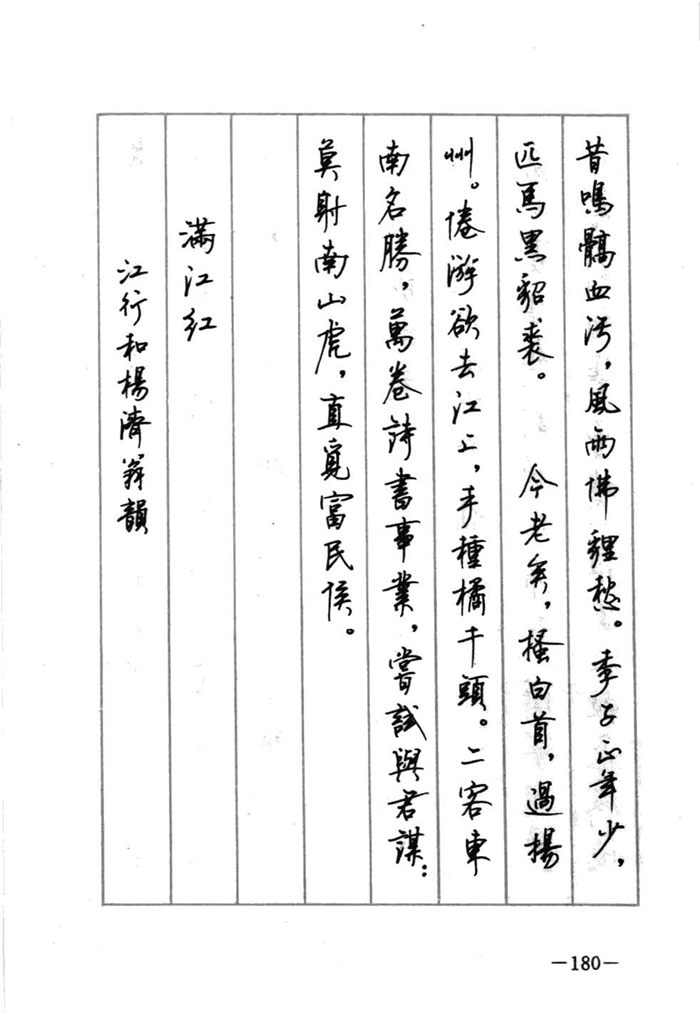 昔鳴髇血污，風雨佛貍愁。季子正年少，
匹馬黑貂裘。　今老矣，搔白首，過楊
州。倦游欲去江上，手種橘千頭。二客東
南名勝，萬卷詩書事業，嘗試與君謀：
莫射南山虎，直覓富民侯。
滿江紅
江行和楊濟翁韻
—180—